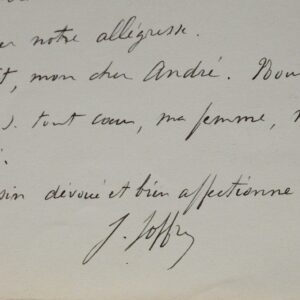 er notre allégresse.
t, mon cher André. Nou
s. tout cœur, ma femme,
sin dévoué et bien affectionné
J. Joffre